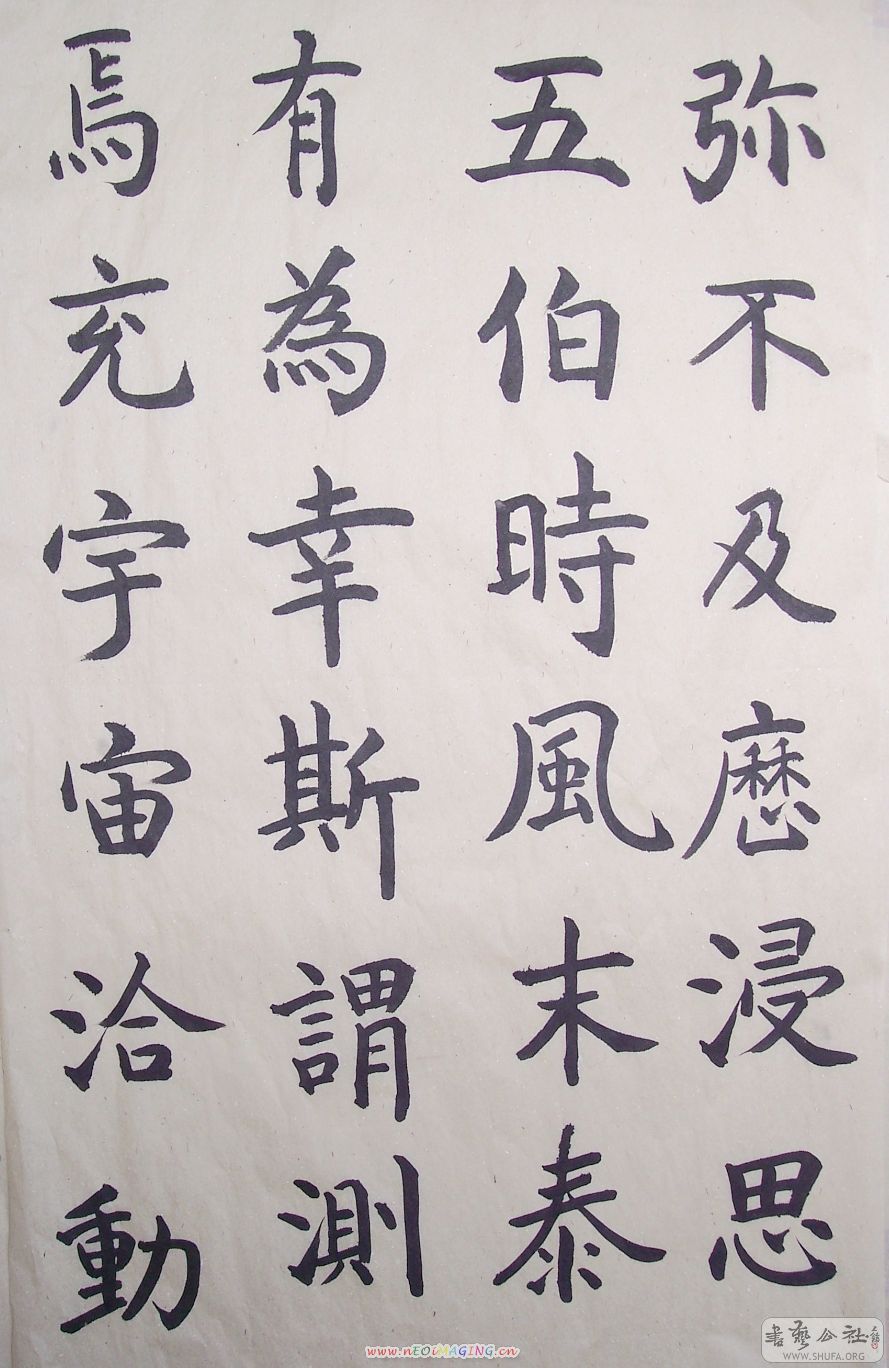 弥不及歷浸思
五伯時風末泰
有為幸斯謂測
焉充宇宙洽動
www.nEOiMAGiNG.cn
書藝公社
WWW.SHUFA.ORG